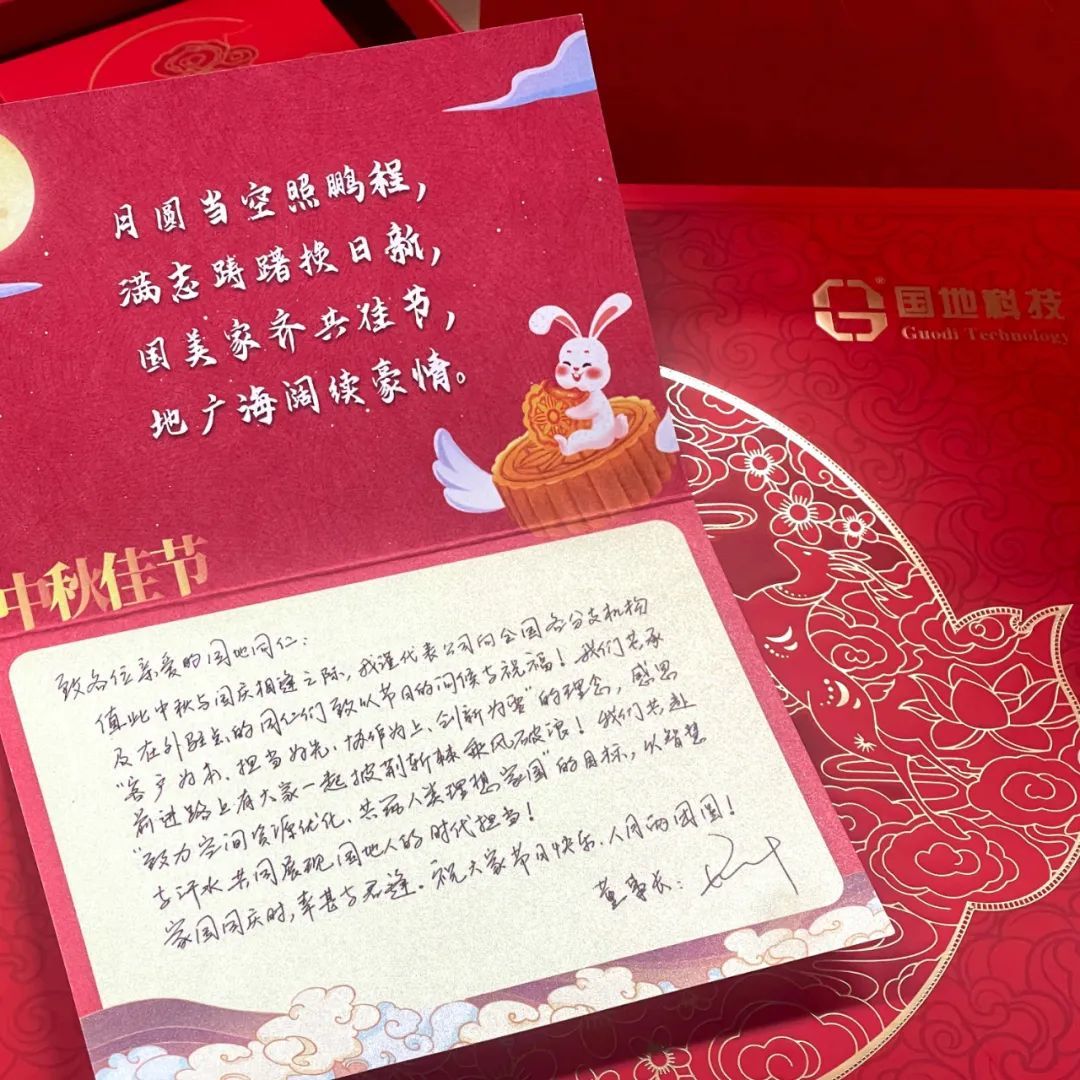 月圆当空照鹏程，
满志踌躇换日新，
国美家齐共佳节，
地广海阔续豪情。
中秋佳节
国地科技
Guodi Technology
致各位亲爱的国地同仁：
值此中秋与国庆相逢之际，我谨代表公司向全国各分支机构
及在外驻点的同仁们致以节日的问候与祝福！我们共承
“客户为本、担当为先、协作为上、创新为要”的理念，感恩
前进路上有大家一起披荆斩棘乘风破浪！我们共赴
“致力空间资源优化、共筑人类理想家园”的目标，以智慧
与汗水共同展现国地人的时代担当！
家国同庆时，幸甚与君逢。祝大家节日快乐、人月两团圆！
董事长：